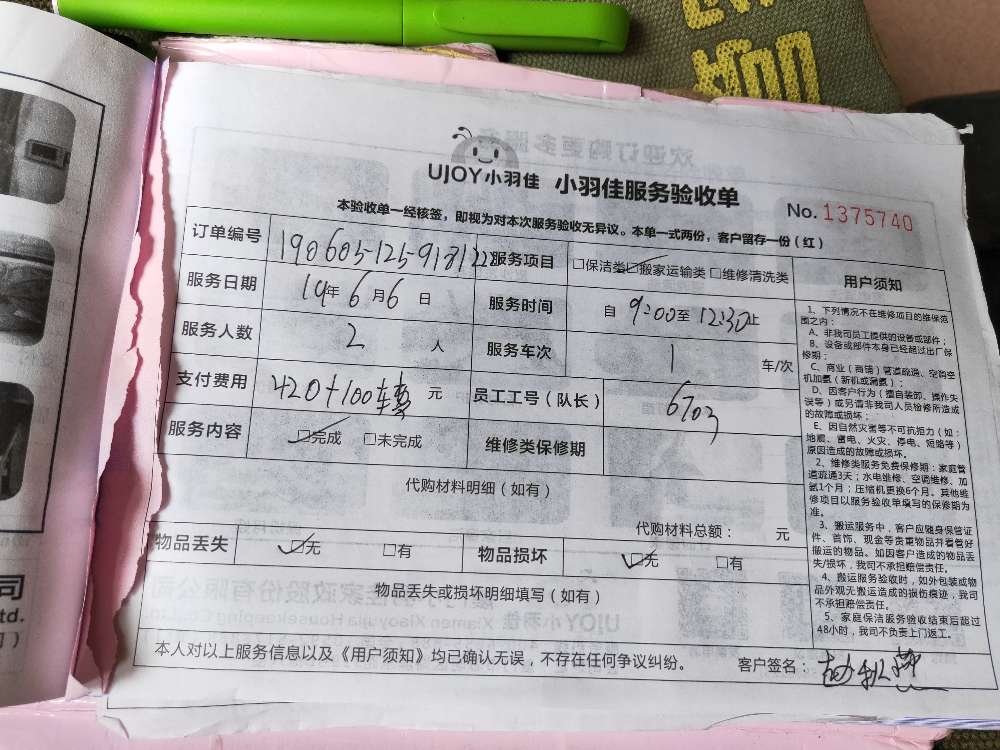 UJOY小羽佳 小羽佳服务验收单
No. 1375740
本验收单一经核签，即视为对本次服务验收无异议。本单一式两份，客户留存一份（红）
订单编号 190605-125-9181 服务项目 □保洁类 ☑搬家运输类 □维修清洗类
服务日期 19年6月6日 服务时间 自 9:00 至 12:30 止
服务人数 2 人 服务车次 1 车/次
支付费用 420+100 元 员工工号（队长） 6703
服务内容 ☑完成 □未完成 维修类保修期
代购材料明细（如有）
代购材料总额： 元
物品丢失 ☑无 □有 物品损坏 ☑无 □有
物品丢失或损坏明细填写（如有）
本人对以上服务信息以及《用户须知》均已确认无误，不存在任何争议纠纷。 客户签名：
用户须知
1、下列情况不在维修项目的维保范
围之内：
A、非我司员工提供的设备或部件；
B、设备或部件本身已经超过出厂保
修期；
C、商业（商铺）管道疏通、空调空
机加氨（新机或漏氨）；
D、因客户行为（擅自装卸、操作失
误等）或另请非我司人员检修所造成
的故障或损坏；
E、因自然灾害等不可抗拒力（如：
地震、雷电、火灾、停电、短路等）
原因造成的故障或损坏。
2、维修类服务免费保修期：家庭管
道疏通3天；水电维修、空调维修、加
氨1个月；压缩机更换6个月。其他维
修项目以服务验收单填写的保修期为
准。
3、搬运服务中，客户应随身保管证
件、首饰、现金等贵重物品并看管好
搬运的物品。如因客户造成的物品丢
失/损坏，我司不承担赔偿责任。
4、搬运服务验收时，如外包装或物
品外观无搬运造成的损伤痕迹，我司
不承担赔偿责任。
5、家庭保洁服务验收结束后超过
48小时，我司不负责上门返工。
司
td.